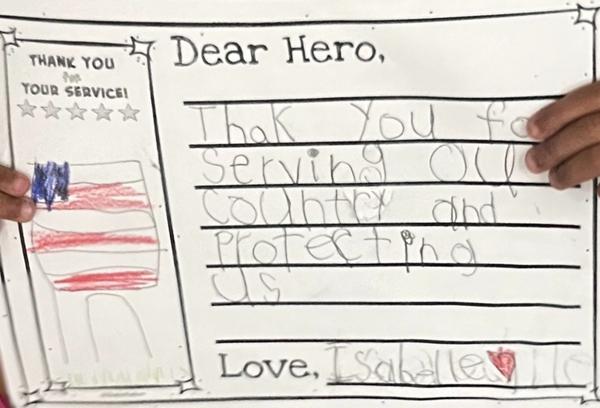 THANK YOU
for
YOUR SERVICE!
Dear Hero,
Thak You fo
serving Our
country and
Protecting
us
Love, Isabelle